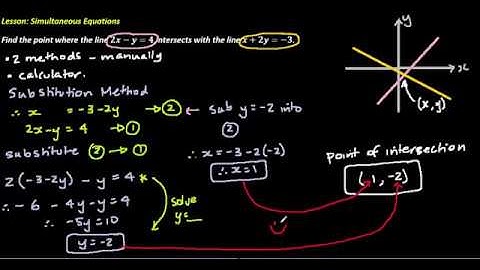 Lesson: Simultaneous Equations
Find the point where the line 2x − y = 4 intersects with the line x + 2y = −3.
• 2 methods – manually
• calculator.
Substitution Method
∴ x = -3-2y → ②
2x-y = 4 → ①
substitute ② → ①
2(-3-2y) - y = 4 *
∴ -6 -4y-y = 4
∴ -5y = 10
y = -2
solve
y=__
← sub y = -2 into
②
∴ x = -3-2(-2)
∴ x = 1
y
x
(x,y)
point of intersection
(1, -2)